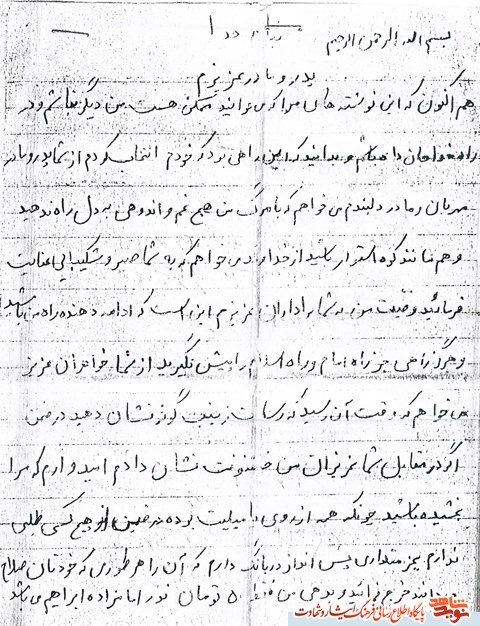 بسم الله الرحمن الرحیم
پدر و مادر عزیزم
هم اکنون که این نوشته های مرا که می خوانید ممکن هست من دیگر نباشم و در
راه خدا جان داده باشم و بدانید که این راهی بود که خودم انتخاب کردم از شما پدر و مادر
مهربان و مادر دلبندم می خواهم که با مرگ من هیچ غم و اندوهی به دل راه ندهید
و همانند کوه استوار باشید از خداوند می خواهم که به شما صبر و شکیبایی عنایت
فرمائید وصیت من به شما برادران عزیزم این است که ادامه دهنده راه من باشید
و هرگز راهی جز راه امام و راه اسلام را پیش نگیرید از شما خواهران عزیز
می خواهم که وقت آن رسید که رسالت زینب گونه نشان دهید در ضمن
اگر در مقابل شما عزیزان من خشونت نشان دادم امیدوارم که مرا
بخشیده باشید چونکه همه از روی بوده در ضمن از هیچ کسی طلبی
ندارم بجز مقداری پس انداز در بانک دارم که آن را هر طوری که خودتان صلاح
می دانید خرج نمائید و بدهی من فقط ۵۰ تومان نذر امامزاده ابراهیم می باشد
نوید شاهد
پایگاه اطلاع رسانی فرهنگ ایثار و شهادت